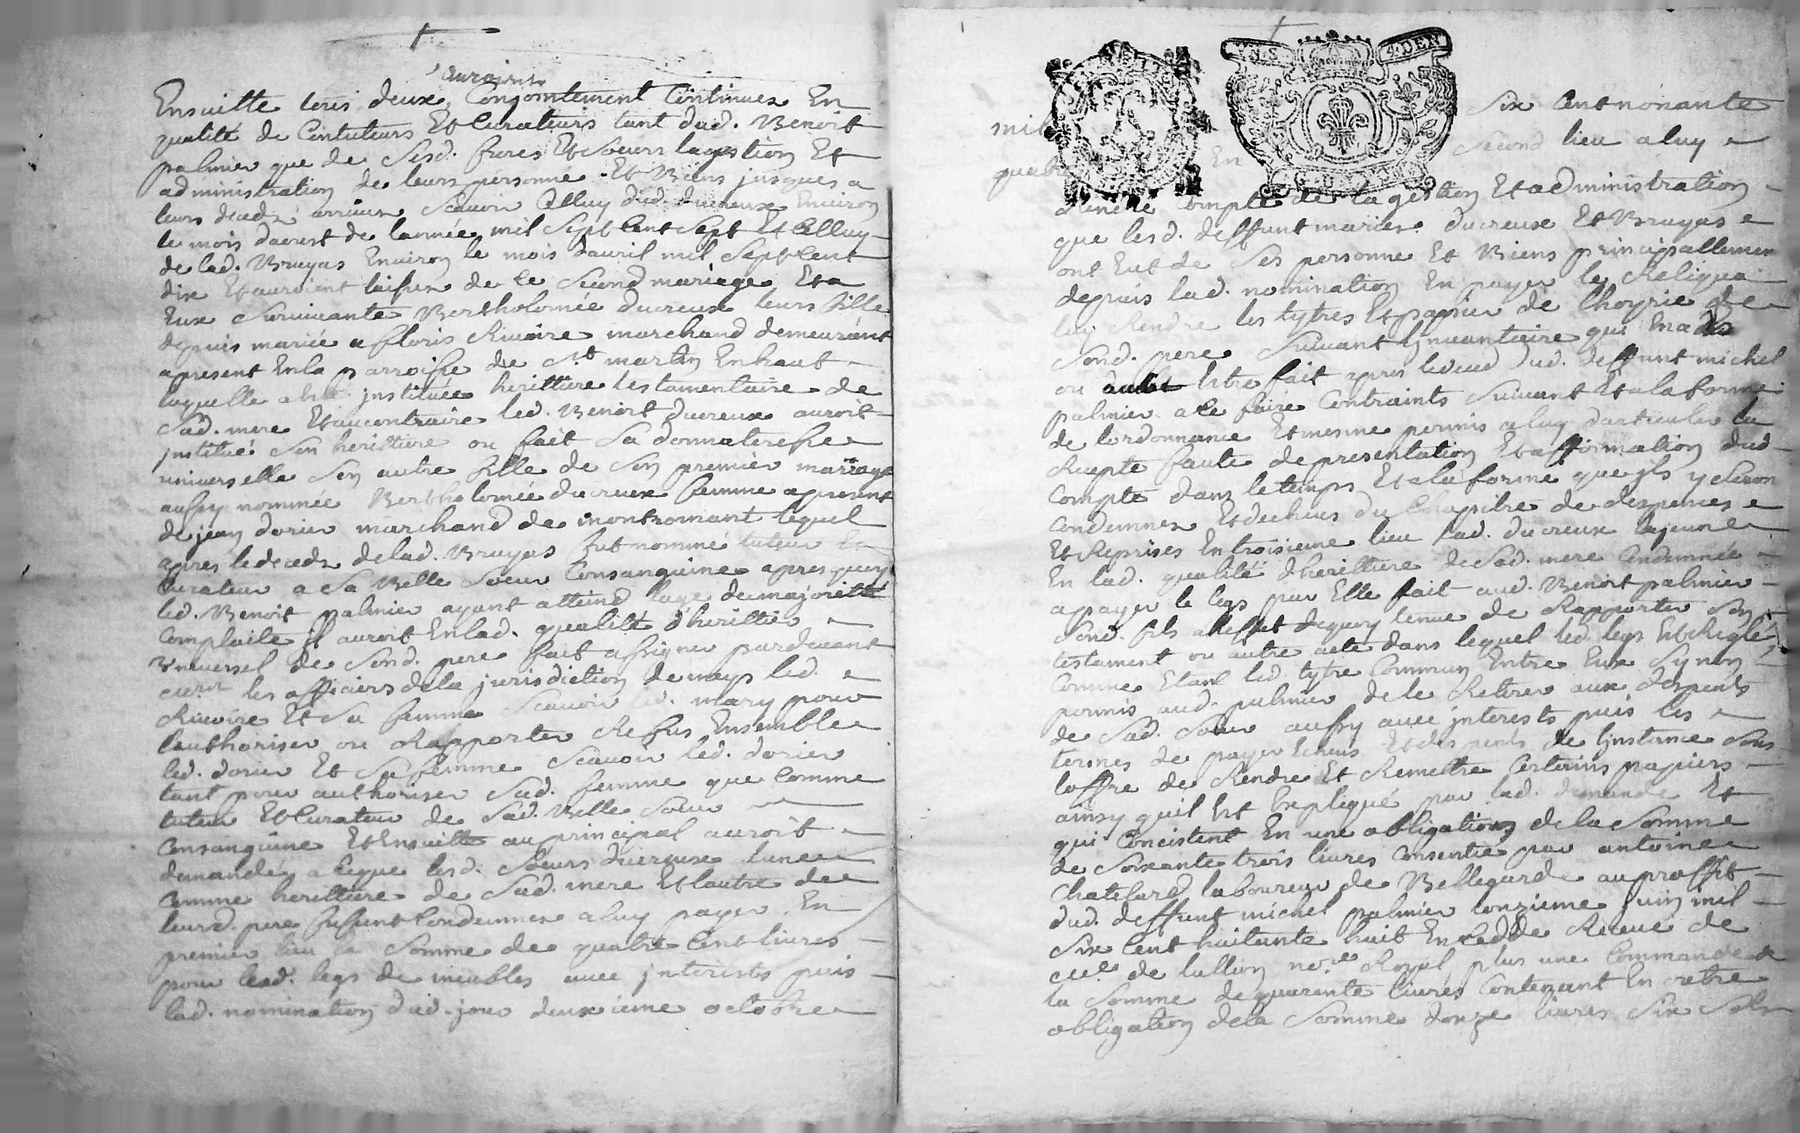 auroient
Ensuitte tous deux Conjointement Continuer En
qualité de Contuteurs Et Curateurs tant dud. Benoit
palmier que de Sesd. freres Et Soeurs la gestion Et
administration de leurs personne Et Biens jusques a
leurs deceds arrivez Scavoir Celluy dud. ducreux Environ
le mois daoust de lannée mil Sept Cent Sept Et Celluy
de lad. Bruyas Environ le mois davril mil Sept Cent
dix Et auroient laissez de ce Second mariage Et a
Eux Survivante Bertholomée ducreux leurs fille
depuis mariée a floris Rivoire marchand demeurant
apresent En la parroisse de St. martin En haut
laquelle a Esté instituée herittiere testamentaire de
Sad. mere Et au contraire led. Benoit ducreux auroit
institué Son herittiere ou fait Sa donnateresse
universelle Son autre fille de Son premier mariage
aussy nommée Bertholomée ducreux femme apresent
de jean dorier marchand de montromant lequel
apres le deceds de lad. Bruyas fut nommé tuteur Et
Curateur a Sa Belle Soeur Consanguine apres quoy
led. Benoit palmier ayant atteind lage de majorité
Complaite il auroit En lad. qualité dherittier
Universel de Sond. pere fait assigner pardevant
les officiers de la jurisdiction de meys led.
Rivoire Et Sa femme Scavoir led. mary pour
lauthoriser ou Rapporter Refus Ensemble
led. dorier Et Sa femme Scavoir led. dorier
tant pour authoriser Sad. femme que Comme
tuteur Et Curateur de Sad. Belle Soeur
Consanguine Et Ensuitte au principal auroit
demandéz a Ceque lesd. Soeurs ducreux lune
Comme herittiere de Sad. mere Et lautre de
leurd. pere fussent Condemnez a luy payer En
premier lieu la Somme de quatre Cent livres
pour lesd. legs de meubles avec interests puis
lad. nomination dud. jour deuxieme octobre
mil Six Cent nonante
quatre En Second lieu a luy
Rendre Compte de la gestion Et administration
que lesd. deffunt mariez ducreux Et Bruyas
ont Eut de Ses personne Et Biens principallement
depuis lad. nomination En payer le Reliqua
luy Rendre les tytres Et papier de lhoyrie de
Sond. pere Suivant linvantaire qui En a
ou Estre fait apres le deceds dud. deffunt michel
palmier a ce faire Contraints Suivant Et a la forme
de lordonnance Et mesme permis a luy darticuler la
Recepte faute de presentation Et affirmation dud.
Compte dans le temps Et a la forme que ils y seron
Condemnez Et decheus du Chapitre de despences
Et Reprises En troisieme lieu lad. ducreux la jeune
En lad. qualité dherittiere de Sad. mere Condemnée
a payer le legs par Elle fait aud. Benoit palmier
Sond. fils a leffet dequoy tenue de Rapporter Son
testament ou autre acte dans lequel led. legs Et Reglé
Comme Etant led. tytre Commun Entre Eux Synon
permis aud. palmier de le Retirer aux despents
de Sad. Soeur aussy avec interests puis les
termes de payer Echeus Et despents de linstance Sous
loffre de Rendre Et Remettre Certains papiers
ainsy quil Est Expliqué par lad. demande Et
qui Concistent En une obligation de la Somme
de Soixante trois livres Consentie par antoine
Chatelard laboureur de Bellegarde au proffit
dud. deffunt michel palmier lonzieme juin mil
Six Cent huitante huit En Cedde Receue de
de lullion nore. Royal plus une Commande de
la Somme de quarente livres Contenant En outre
obligation de la Somme donze livres Six Sols